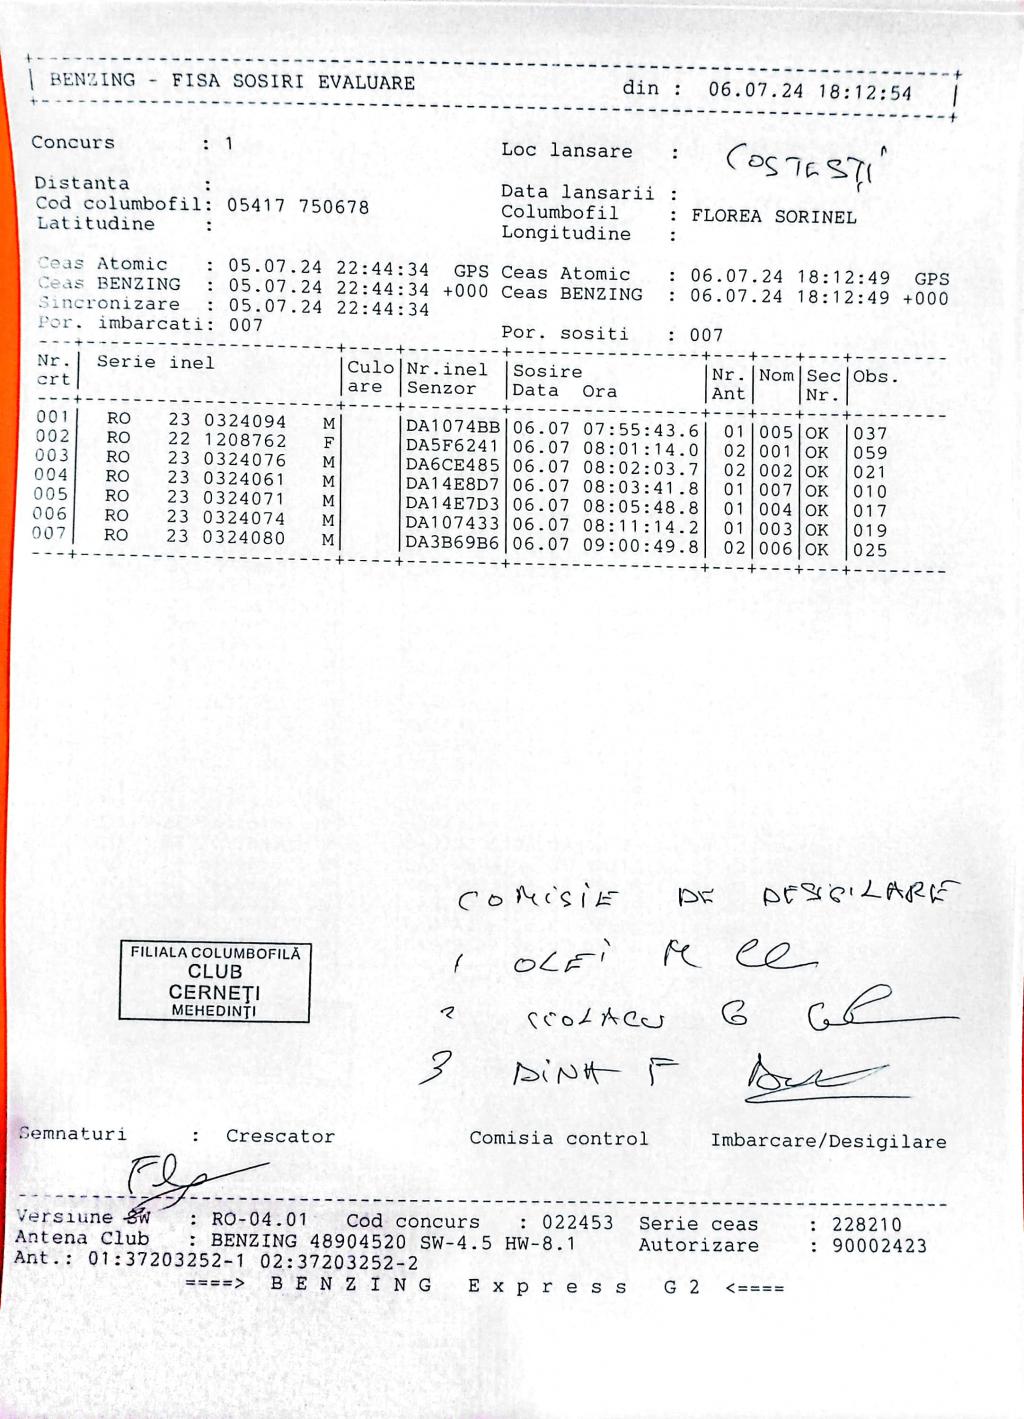 BENZING - FISA SOSIRI EVALUARE din : 06.07.24 18:12:54
Concurs : 1 Loc lansare : COSTESTI
Distanta : Data lansarii :
Cod columbofil: 05417 750678 Columbofil : FLOREA SORINEL
Latitudine : Longitudine :
Ceas Atomic : 05.07.24 22:44:34 GPS Ceas Atomic : 06.07.24 18:12:49 GPS
Ceas BENZING : 05.07.24 22:44:34 +000 Ceas BENZING : 06.07.24 18:12:49 +000
Sincronizare : 05.07.24 22:44:34
Por. imbarcati: 007 Por. sositi : 007
Nr. Serie inel Culo Nr.inel Sosire Nr. Nom Sec Obs.
crt are Senzor Data Ora Ant Nr.
001 RO 23 0324094 M DA1074BB 06.07 07:55:43.6 01 005 OK 037
002 RO 22 1208762 F DA5F6241 06.07 08:01:14.0 02 001 OK 059
003 RO 23 0324076 M DA6CE485 06.07 08:02:03.7 02 002 OK 021
004 RO 23 0324061 M DA14E8D7 06.07 08:03:41.8 01 007 OK 010
005 RO 23 0324071 M DA14E7D3 06.07 08:05:48.8 01 004 OK 017
006 RO 23 0324074 M DA107433 06.07 08:11:14.2 01 003 OK 019
007 RO 23 0324080 M DA3B69B6 06.07 09:00:49.8 02 006 OK 025
COMISIE DE DESIGILARE
1 OLEI M
2 G
3 DINA F
FILIALA COLUMBOFILĂ
CLUB
CERNEȚI
MEHEDINȚI
Semnaturi : Crescator Comisia control Imbarcare/Desigilare
Versiune SW : RO-04.01 Cod concurs : 022453 Serie ceas : 228210
Antena Club : BENZING 48904520 SW-4.5 HW-8.1 Autorizare : 90002423
Ant.: 01:37203252-1 02:37203252-2
====> B E N Z I N G E x p r e s s G 2 <====